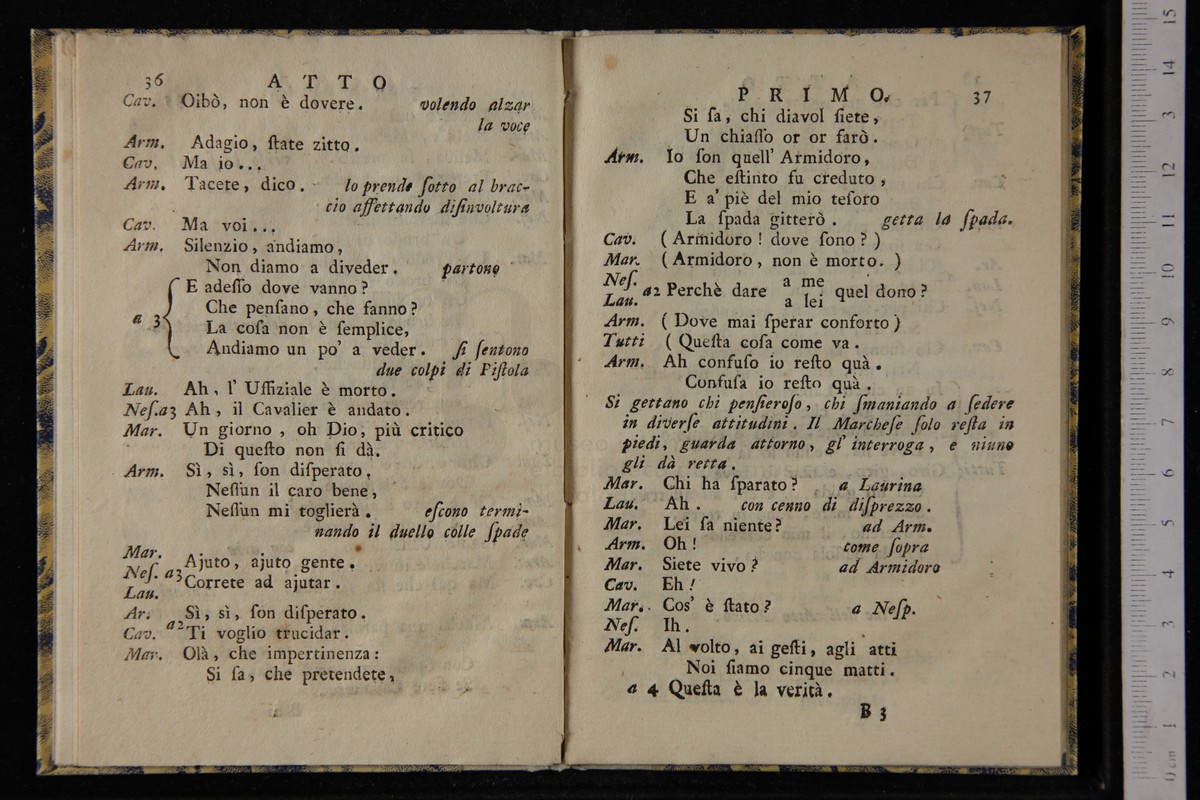 36 ATTO
Cav. Oibò, non è dovere. volendo alzar
la voce
Arm. Adagio, ſtate zitto.
Cav. Ma io...
Arm. Tacete, dico. lo prende ſotto al brac-
cio affettando diſinvoltura
Cav. Ma voi...
Arm. Silenzio, andiamo,
Non diamo a diveder. partono
E adeſſo dove vanno?
Che penſano, che fanno?
a 3 La coſa non è ſemplice,
Andiamo un po' a veder. ſi ſentono
due colpi di Piſtola
Lau. Ah, l' Uffiziale è morto.
Neſ. a3 Ah, il Cavalier è andato.
Mar. Un giorno, oh Dio, più critico
Di queſto non ſi dà.
Arm. Sì, sì, ſon diſperato,
Neſſun il caro bene,
Neſſun mi toglierà. eſcono termi-
nando il duello colle ſpade
Mar.
Neſ. a3 Ajuto, ajuto gente.
Lau. Correte ad ajutar.
Ar. Sì, sì, ſon diſperato.
Cav. a2 Ti voglio trucidar.
Mar. Olà, che impertinenza:
Si ſa, che pretendete,
PRIMO. 37
Si ſa, chi diavol ſiete,
Un chiaſſo or or farò.
Arm. Io ſon quell' Armidoro,
Che eſtinto fu creduto,
E a' piè del mio teſoro
La ſpada gitterò. getta la ſpada.
Cav. (Armidoro! dove ſono?)
Mar. (Armidoro, non è morto.)
Neſ. a me
a2 Perchè dare quel dono?
Lau. a lei
Arm. (Dove mai ſperar conforto)
Tutti (Queſta coſa come va.
Arm. Ah confuſo io reſto quà.
Confuſa io reſto quà.
Si gettano chi penſieroſo, chi ſmaniando a ſedere
in diverſe attitudini. Il Marcheſe ſolo reſta in
piedi, guarda attorno, gl' interroga, e niuno
gli dà retta.
Mar. Chi ha ſparato? a Laurina
Lau. Ah. con cenno di diſprezzo.
Mar. Lei ſa niente? ad Arm.
Arm. Oh! come ſopra
Mar. Siete vivo? ad Armidoro
Cav. Eh!
Mar. Cos' è ſtato? a Neſp.
Neſ. Ih.
Mar. Al volto, ai geſti, agli atti
Noi ſiamo cinque matti.
a 4 Queſta è la verità.
B 3
0 cm 1 2 3 4 5 6 7 8 9 10 11 12 13 14 15